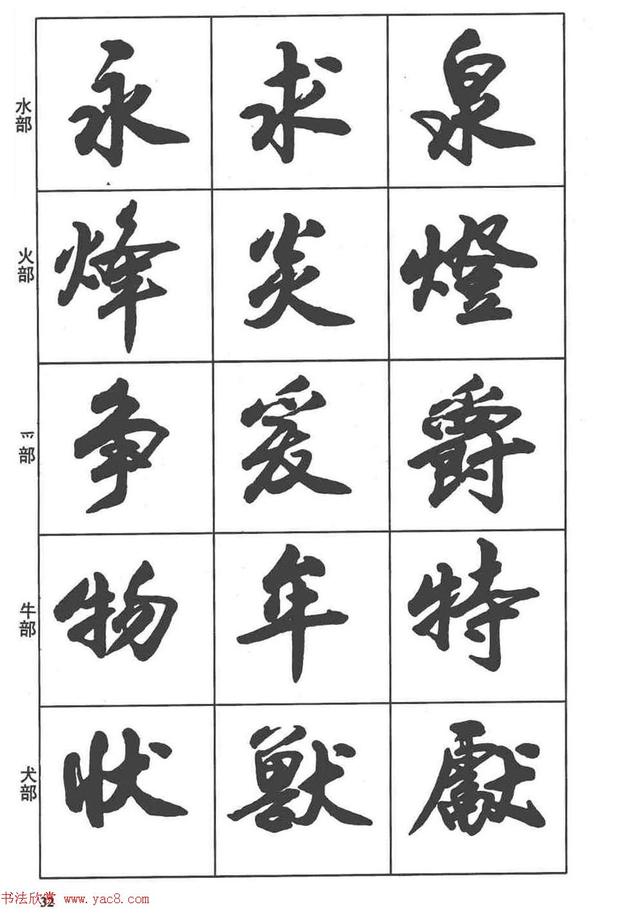 水部 永 求 泉
火部 烽 炎 燈
爫部 争 爰 爵
牛部 物 年 特
犬部 状 獸 獻
32
书法欣赏 www.yac8.com